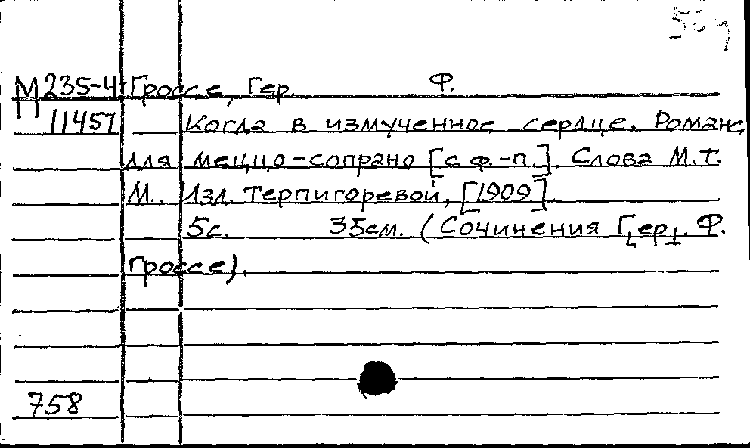 М 235-4 Гроссе, Гер. Ф.
11457 Когда в измученное сердце. Романс
для меццо-сопрано [с ф.-п.]. Слова М.Т.
М., Изд. Терпигоревой, [1909].
5с. 35см. (Сочинения Г[ер]. Ф.
Гроссе).
758